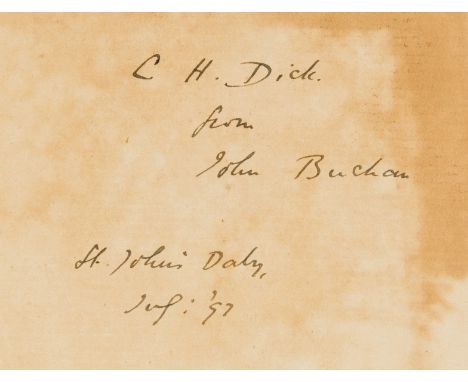 C H. Dick.
from
John Buchan
St. John's Dalry,
'97